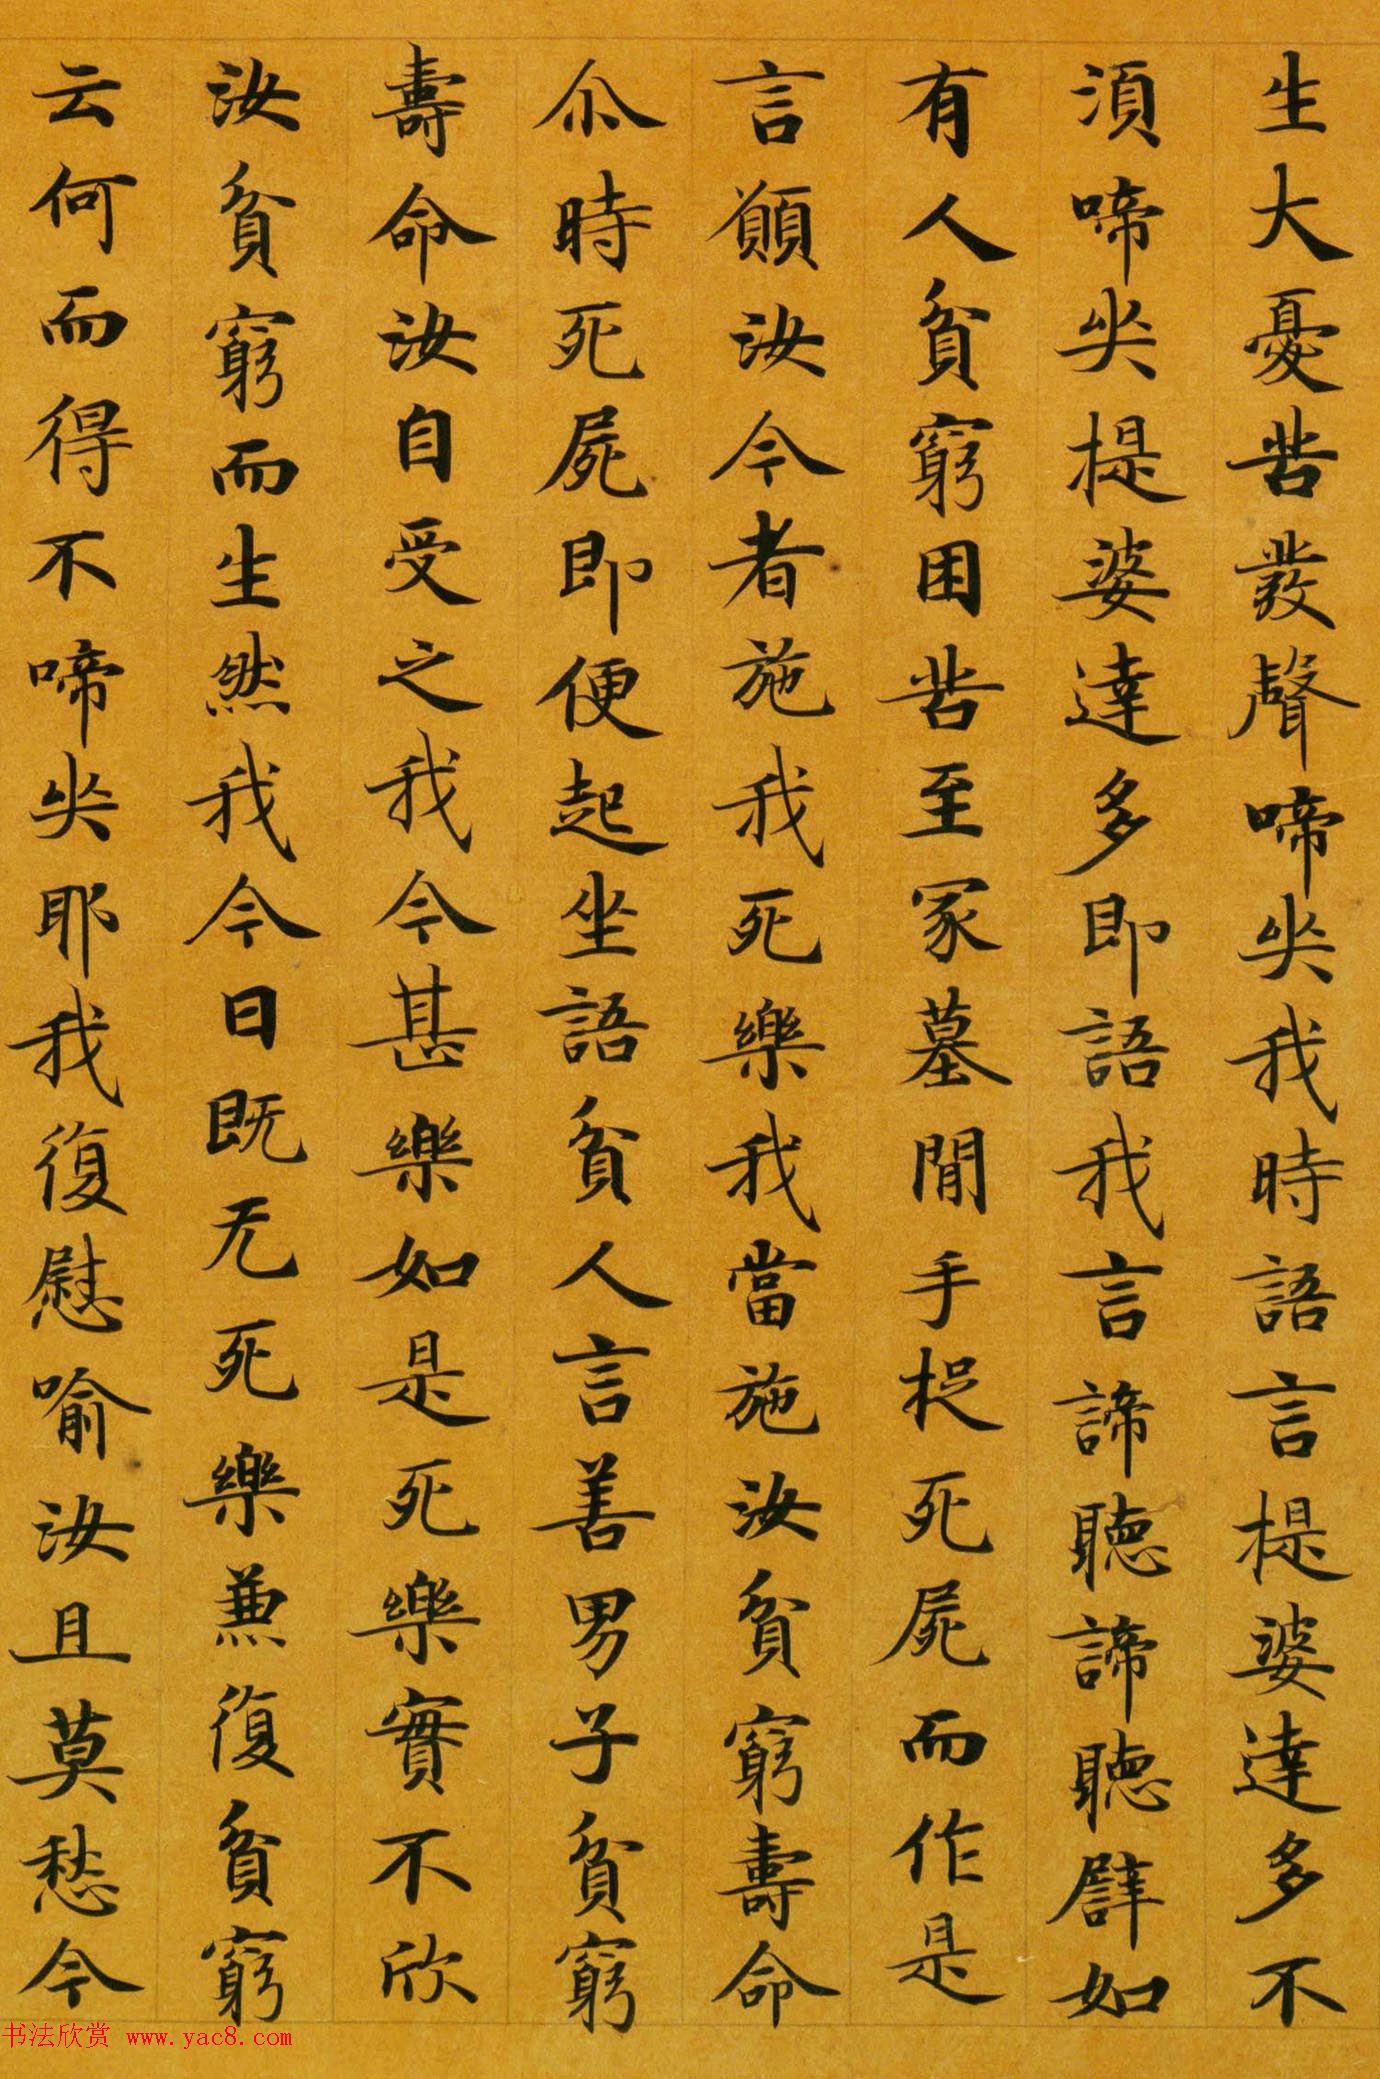 生大憂苦發聲啼哭我時語言提婆達多不
須啼哭提婆達多即語我言諦聽諦聽譬如
有人貧窮困苦至冢墓間手捉死屍而作是
言願汝今者施我死樂我當施汝貧窮壽命
尒時死屍即便起坐語貧人言善男子貧窮
壽命汝自受之我今甚樂如是死樂實不欣
汝貧窮而生然我今日既无死樂兼復貧窮
云何而得不啼哭耶我復慰喻汝且莫愁今
书法欣赏 www.yac8.com